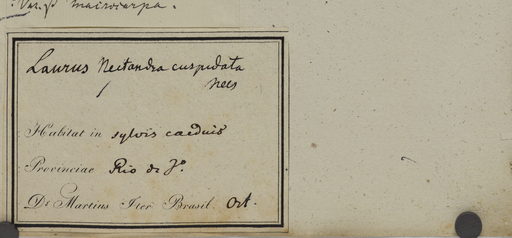 Var. β macrocarpa.
Laurus Nectandra cuspidata
Nees
Habitat in sylvis caeduis
Provinciae Rio de Jº
Dr Martius Iter Brasil. Oct.